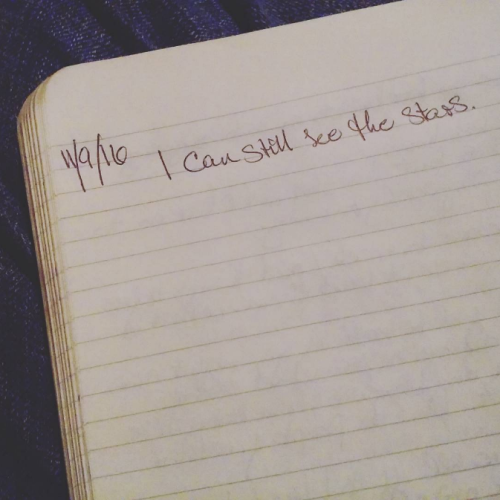 11/9/16 I can still see the stars.